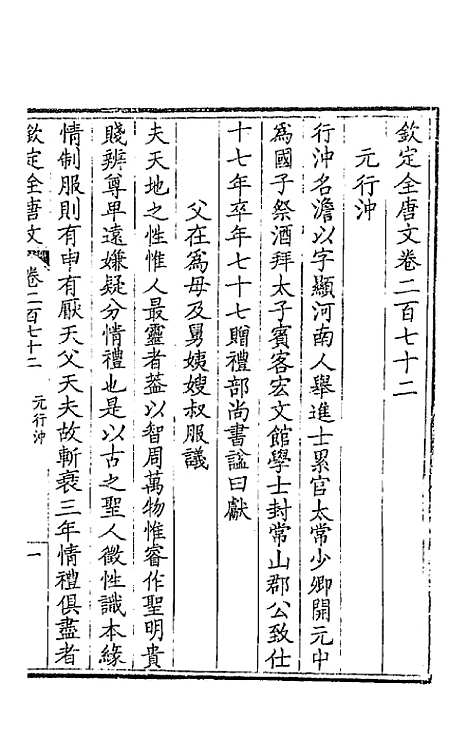 欽定全唐文卷二百七十二
元行沖
行沖名澹以字顯河南人舉進士累官太常少卿開元中
爲國子祭酒拜太子賓客宏文館學士封常山郡公致仕
十七年卒年七十七贈禮部尚書諡曰獻
父在爲母及舅姨嫂叔服議
夫天地之性惟人最靈者葢以智周萬物惟睿作聖明貴
賤辨尊卑遠嫌疑分情禮也是以古之聖人徵性識本緣
情制服則有申有厭天父天夫故斬衰三年情禮俱盡者
欽定全唐文 卷二百七十二 元行沖 一